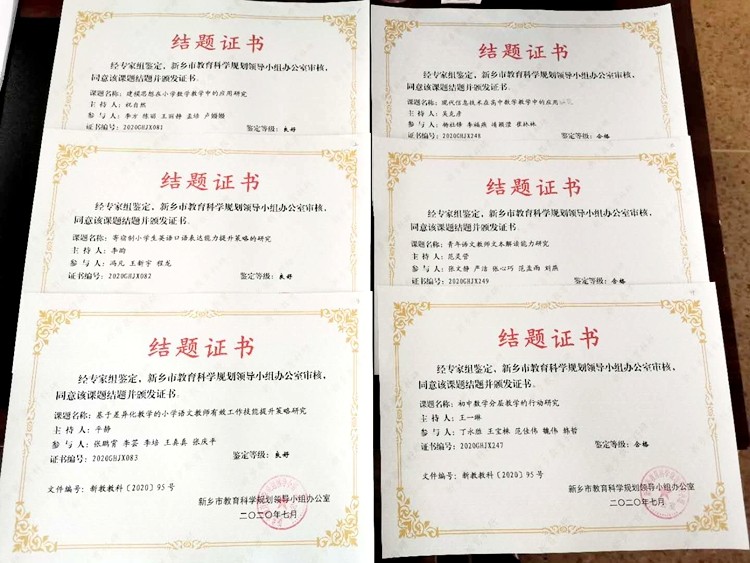 结题证书
经专家组鉴定，新乡市教育科学规划领导小组办公室审核，
同意该课题结题并颁发证书。
课题名称：建模思想在小学数学教学中的应用研究
主 持 人：祝自然
参 与 人：李方 陈丽 王丽静 孟培 卢姗姗
证书编号：2020GHJX081 鉴定等级：良好
结题证书
经专家组鉴定，新乡市教育科学规划领导小组办公室审核，
同意该课题结题并颁发证书。
课题名称：寄宿制小学生英语口语表达能力提升策略的研究
主 持 人：李昀
参 与 人：冯元 王新宇 程龙
证书编号：2020GHJX082 鉴定等级：良好
结题证书
经专家组鉴定，新乡市教育科学规划领导小组办公室审核，
同意该课题结题并颁发证书。
课题名称：基于差异化教学的小学语文教师有效工作技能提升策略研究
主 持 人：平静
参 与 人：张鹏霄 李芸 李培 王真真 张庆平
证书编号：2020GHJX083 鉴定等级：良好
文件编号：新教教科〔2020〕95号
新乡市教育科学规划领导小组办公室
二〇二〇年七月
结题证书
经专家组鉴定，新乡市教育科学规划领导小组办公室审核，
同意该课题结题并颁发证书。
课题名称：现代信息技术在高中数学教学中的应用
主 持 人：吴克彦
参 与 人：杨社锋 李福燕 靖颖滢 崔林林
证书编号：2020GHJX248 鉴定等级：合格
结题证书
经专家组鉴定，新乡市教育科学规划领导小组办公室审核，
同意该课题结题并颁发证书。
课题名称：青年语文教师文本解读能力研究
主 持 人：范灵管
参 与 人：张文静 严洁 张心巧 范孟雨 刘燕
证书编号：2020GHJX249 鉴定等级：合格
结题证书
经专家组鉴定，新乡市教育科学规划领导小组办公室审核，
同意该课题结题并颁发证书。
课题名称：初中数学分层教学的行动研究
主 持 人：王一琳
参 与 人：丁永胜 王宝栋 范仕伟 魏伟 韩哲
证书编号：2020GHJX247 鉴定等级：合格
文件编号：新教教科〔2020〕95号
新乡市教育科学规划领导小组办公室
二〇二〇年七月